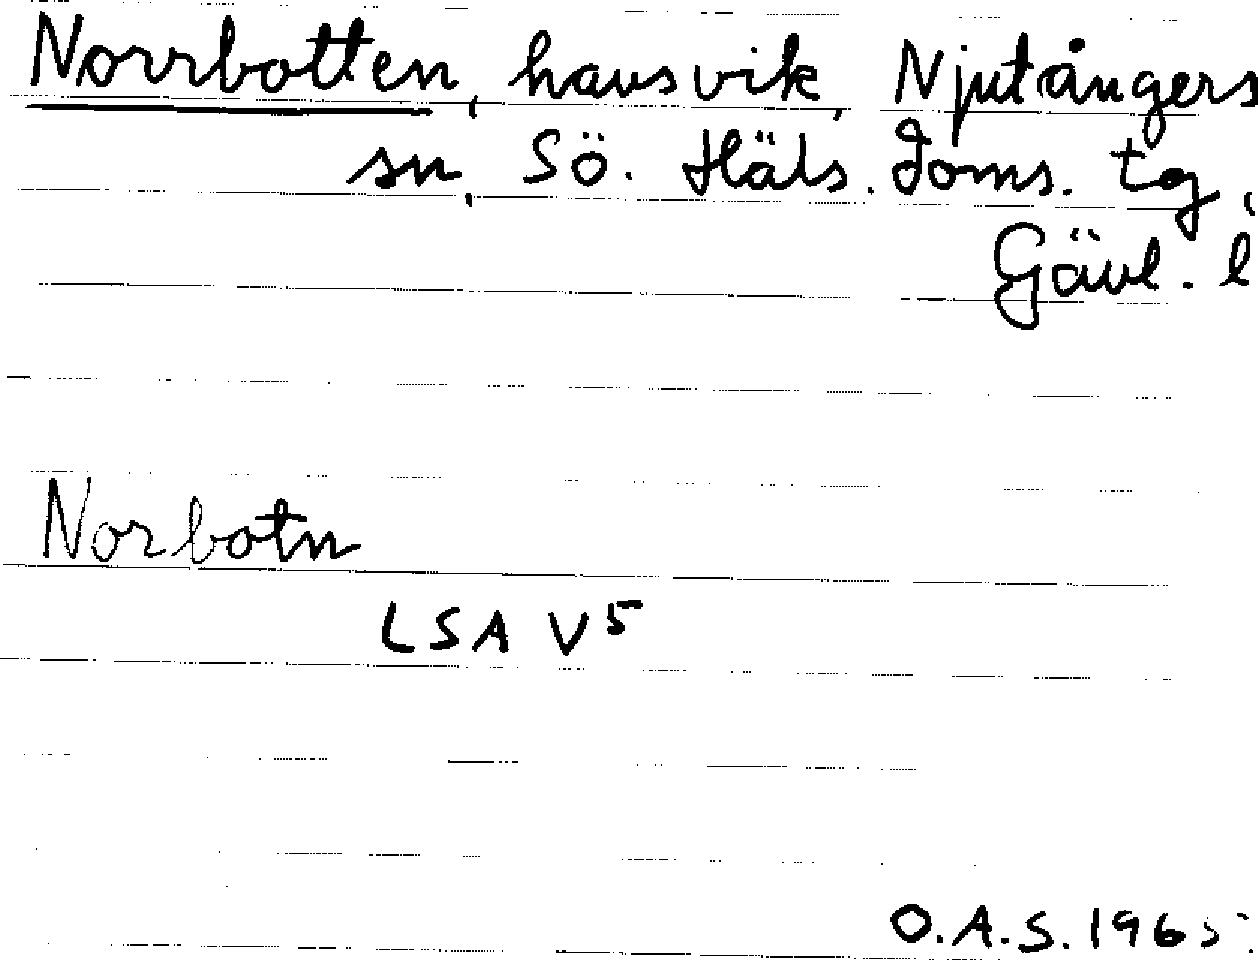 Norrbotten, havsvik, Njutångers
sn, Sö. Häls. Doms. tg,
Gävl. l
Norbotn
LSA V5
O.A.S. 1965